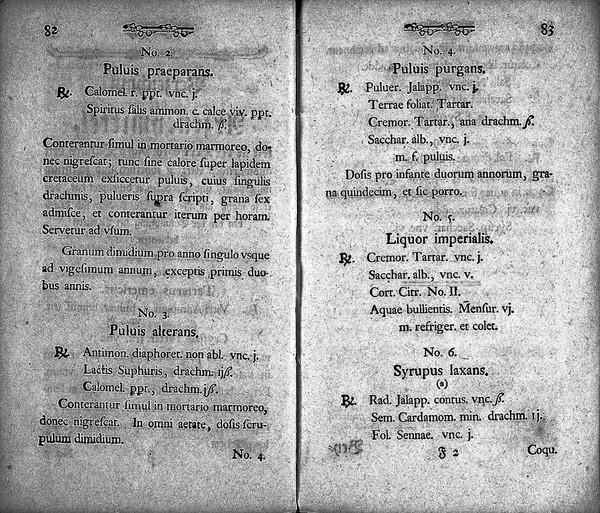 82
No. 2.
Puluis praeparans.
℞. Calomel. r. ppt. vnc. j.
Spiritus ſalis ammon. c. calce viv. ppt.
drachm. ß.
Conterantur ſimul in mortario marmoreo, do-
nec nigreſcat; tunc ſine calore ſuper lapidem
cretaceum exſiccetur puluis, cuius ſingulis
drachmis, pulueris ſupra ſcripti, grana ſex
admiſce, et conterantur iterum per horam.
Servetur ad vſum.
Granum dimidium pro anno ſingulo vsque
ad vigeſimum annum, exceptis primis duo-
bus annis.
No. 3.
Puluis alterans.
℞. Antimon. diaphoret. non abl. vnc. j.
Lactis Suphuris, drachm. ijß.
Calomel. ppt., drachm. jß.
Conterantur ſimul in mortario marmoreo,
donec nigreſcat. In omni aetate, doſis ſcru-
pulum dimidium.
No. 4.
83
No. 4.
Puluis purgans.
℞. Puluer. Jalapp. vnc. j.
Terrae foliat. Tartar.
Cremor. Tartar., ana drachm. ß.
Sacchar. alb., vnc. j.
m. f. puluis.
Doſis pro infante duorum annorum, gra-
na quindecim, et ſic porro.
No. 5.
Liquor imperialis.
℞. Cremor. Tartar. vnc. j.
Sacchar. alb., vnc. v.
Cort. Citr. No. II.
Aquae bullientis. Menſur. vj.
m. refriger. et colet.
No. 6.
Syrupus laxans.
(a)
℞. Rad. Jalapp. contus. vnc. ß.
Sem. Cardamom. min. drachm. ij.
Fol. Sennae. vnc. j.
F 2 Coqu.